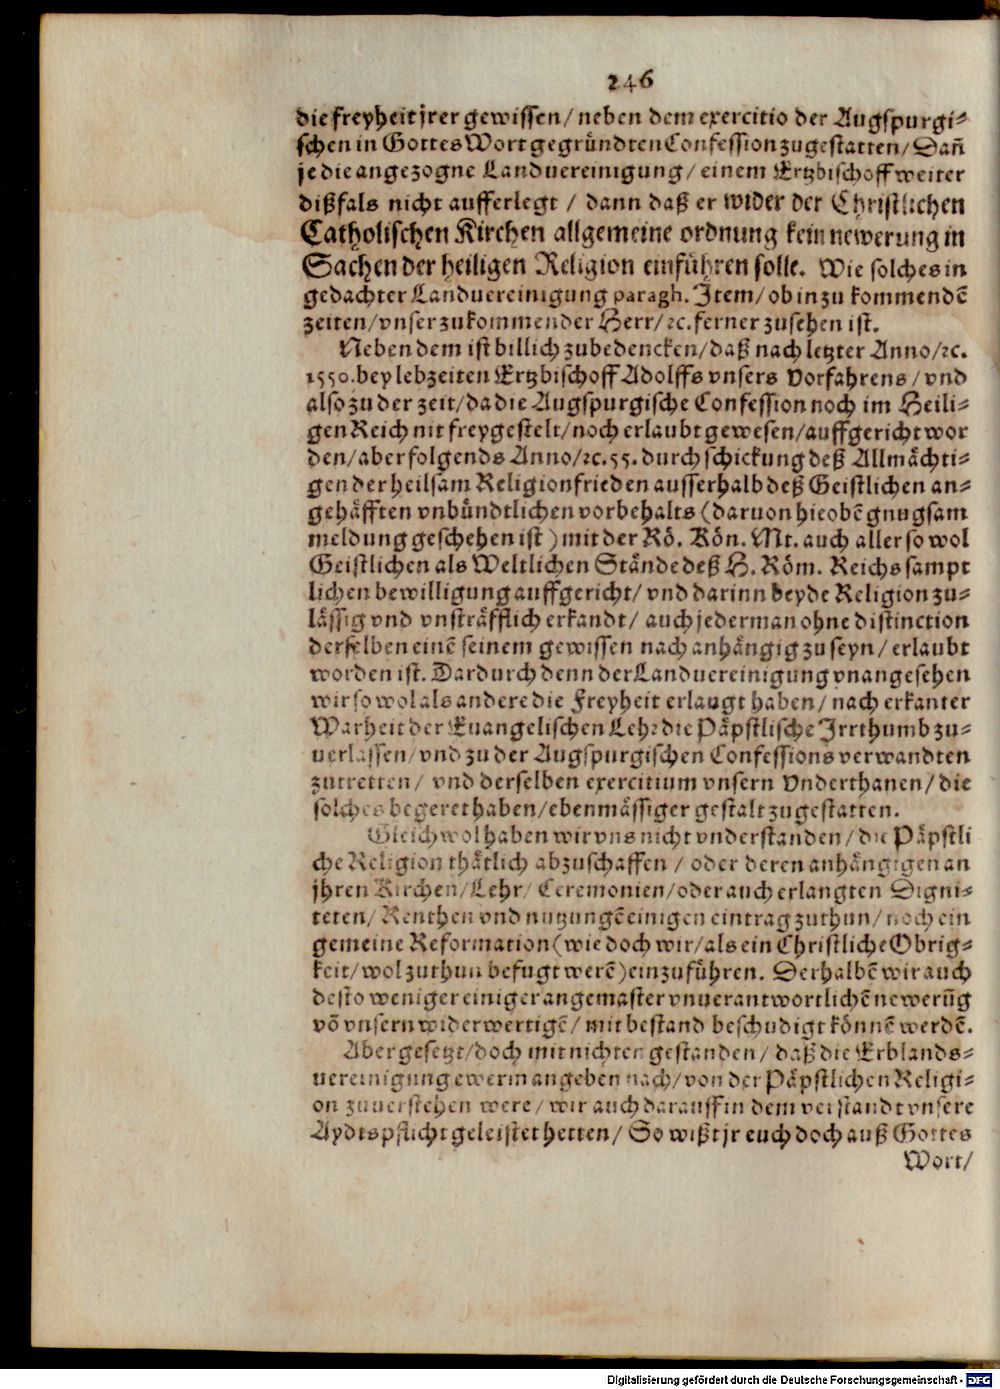 246
die freyheit jrer gewissen / neben dem exercitio der Augspurgi-
schen in Gottes Wort gegründten Confession zugestatten / Dañ
je die angezogne Landuereinigung / einem Ertzbischoff weiter
dißfals nicht aufferlegt / dann daß er wider der Christlichen
Catholischen Kirchen allgemeine ordnung kein newerung in
Sachen der heiligen Religion einführen solle. Wie solches in
gedachter Landuereinigung paragh. Item / ob in zu kommendē
zeiten / vnser zukommender Herr / ꝛc. ferner zusehen ist.
Neben dem ist billich zubedencken / daß nach letzter Anno / ꝛc.
1550. bey lebzeiten Ertzbischoff Adolffs vnsers Vorfahrens / vnd
also zu der zeit / da die Augspurgische Confession noch im Heili-
gen Reich nit freygestelt / noch erlaubt gewesen / auffgericht wor
den / aber folgends Anno / ꝛc. 55. durch schickung deß Allmächti-
gen der heilsam Religionfrieden ausserhalb deß Geistlichen an-
gehäfften vnbündtlichen vorbehalts (daruon hieobē gnugsam
meldung geschehen ist) mit der Rö. Kön. Mt. auch aller so wol
Geistlichen als Weltlichen Stände deß H. Röm. Reichs sampt
lichen bewilligung auffgericht / vnd darinn beyde Religion zu-
lässig vnd vnsträfflich erkandt / auch jederman ohne distinction
derselben einē seinem gewissen nach anhängig zu seyn / erlaubt
worden ist. Dardurch denn der Landuereinigung vnangesehen
wir so wol als andere die Freyheit erlangt haben / nach erkanter
Warheit der Euangelischen Lehr die Päpstlische Irrthumb zu-
uerlassen / vnd zu der Augspurgischen Confessions verwandten
zutretten / vnd derselben exercitium vnsern Vnderthanen / die
solches begeret haben / ebenmässiger gestalt zugestatten.
Gleichwol haben wir vns nicht vnderstanden / die Päpstli
che Religion thätlich abzuschaffen / oder deren anhängigen an
jhren Kirchen / Lehr / Ceremonien / oder auch erlangten Digni-
teten / Renthen vnd nutzungē einigen eintrag zuthun / noch ein
gemeine Reformation (wie doch wir / als ein Christliche Obrig-
keit / wol zuthun befugt werē) einzuführen. Derhalbē wir auch
desto weniger einiger angemaster vnuerantwortlichē newerūg
vō vnsern widerwertigē / mit bestand beschudigt könnē werdē.
Aber gesetzt / doch mit nichten gestanden / daß die Erblands-
uereinigung ewerm angeben nach / von der Päpstlichen Religi-
on zuuerstehen were / wir auch darauff in dem verstandt vnsere
Aydtspflicht geleistet hetten / So wißt jr euch doch auß Gottes
Wort /
Digitalisierung gefördert durch die Deutsche Forschungsgemeinschaft - DFG